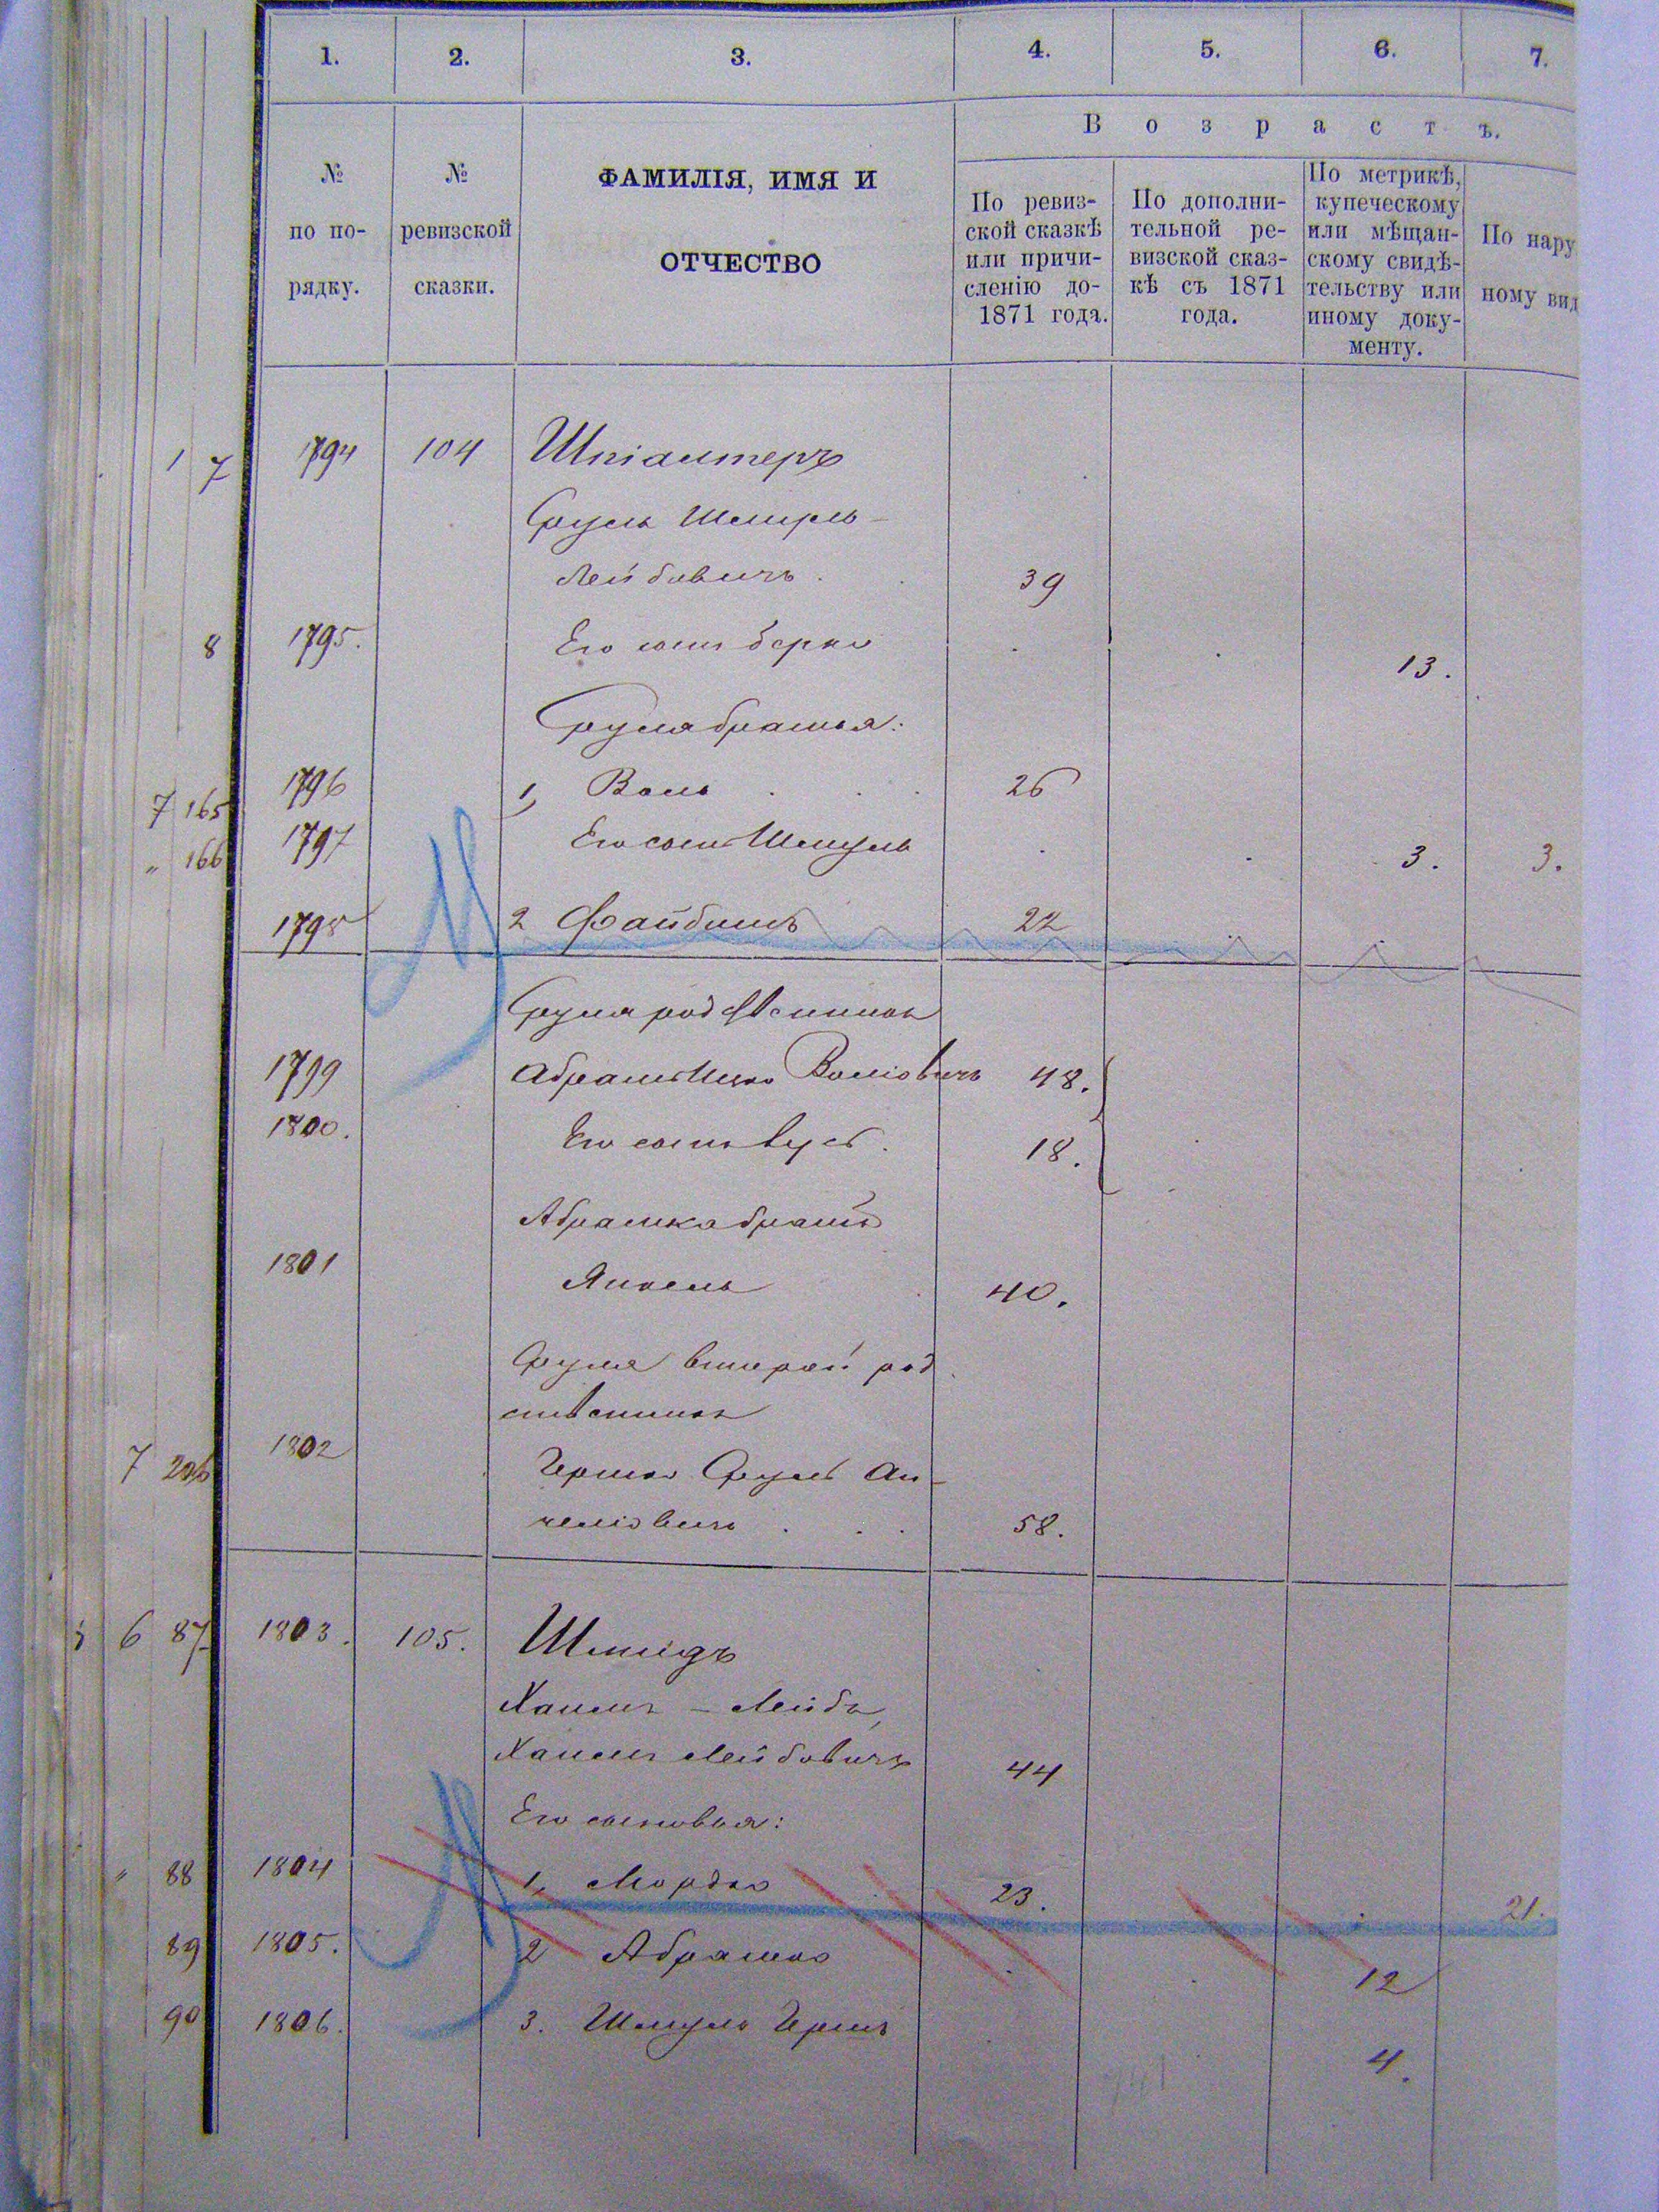 1. 2. 3. 4. 5. 6. 7.
В о з р а с т ъ.
№ по по- рядку.
№ ревизской сказки.
ФАМИЛІЯ, ИМЯ И
ОТЧЕСТВО
По ревиз-
ской сказкѣ
или причи-
сленію до-
1871 года.
По дополни-
тельной ре-
визской сказ-
кѣ съ 1871
года.
По метрикѣ,
купеческому
или мѣщан-
скому свидѣ-
тельству или
иному доку-
менту.
По нару
ному вид
1 7 1794 104 Шпіалтеръ
Сруль Шмуль-
Лейбовичъ. 39
8 1795. Его сынъ Берко 13.
Сруля братья:
7 165 1796 1, Воль 26
" 166 1797 Его сынъ Шмуль 3. 3.
1798 2 Файбишъ 22
Сруля родственникъ
1799 Абрамъ Ицко Воліовичъ 48.
1800. Его сынъ 18.
Абрамка братъ
1801 Янкель 40.
Сруля второй род
ственникъ
7 206 1802 Гершко Сруль Ан-
челіовичъ 58.
6 87 1803. 105. Шмидъ
Хаимъ - Лейба,
Хаимъ Лейбовичъ 44
Его сыновья:
" 88 1804 1, Мордко 23. 21.
89 1805. 2 Абрамко 12
90 1806. 3. Шмуль Гершъ 4.